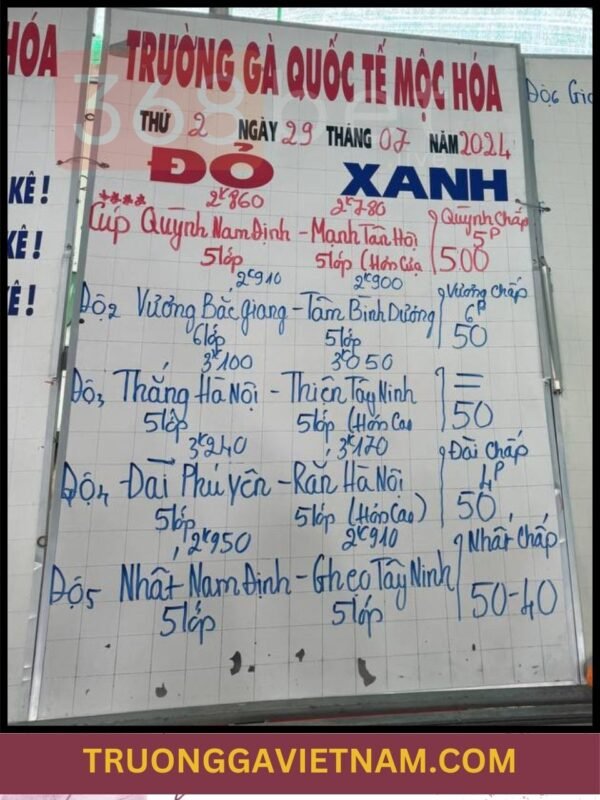 HÓA
TRƯỜNG GÀ QUỐC TẾ MỘC HÓA
368bet
THỨ 2 NGÀY 29 THÁNG 07 NĂM 2024
Độ6
ĐỎ XANH
KÊ!
KÊ!
KÊ!
****
2K860 2K780
Cúp Quỳnh Nam Định - Mạnh Tân Hội Quỳnh Chấp
5P
5 lớp 5 lớp (Hớn Cựa 500
2K910 2K900
Độ2 Vương Bắc Giang - Tâm Bình Dương Vương Chấp
6P
6 lớp 5 lớp 50
3K100 3K050
Độ3 Thắng Hà Nội - Thiện Tây Ninh =
5 lớp 5 lớp (Hớn Cao 50
3K240 3K170
Độ4 Đài Phú Yên - Rắn Hà Nội Đài Chấp
4P
5 lớp 5 lớp (Hớn Cao) 50
2K950 2K910
Độ5 Nhất Nam Định - Ghẹo Tây Ninh Nhất Chấp
5 lớp 5 lớp 50-40
TRUONGGAVIETNAM.COM